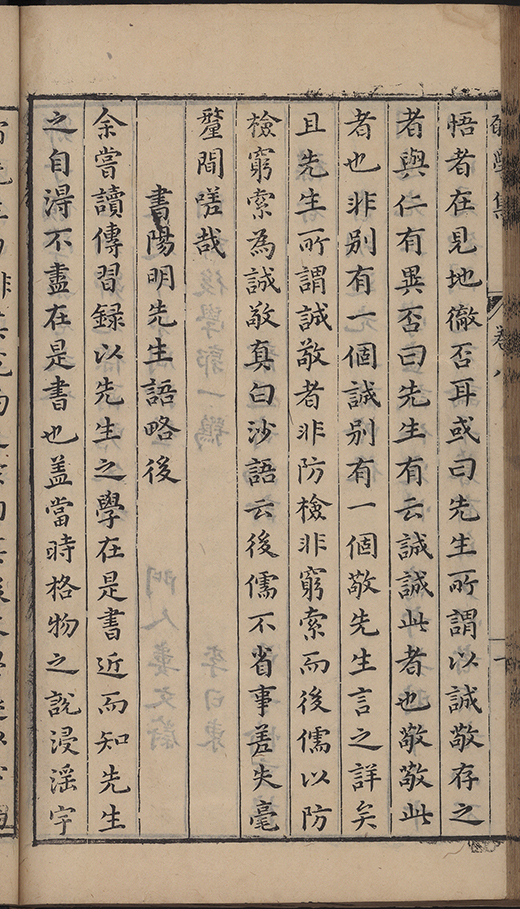 悟者在見地徹否耳或曰先生所謂以誠敬存之
者與仁有異否曰先生有云誠誠此者也敬敬此
者也非别有一個誠别有一個敬先生言之詳矣
且先生所謂誠敬者非防檢非窮索而後儒以防
檢窮索為誠敬真白沙語云後儒不省事差失毫
釐間嗟哉
書陽明先生語略後
余嘗讀傳習録以先生之學在是書近而知先生
之自淂不盡在是書也盖當時格物之說浸滛宇